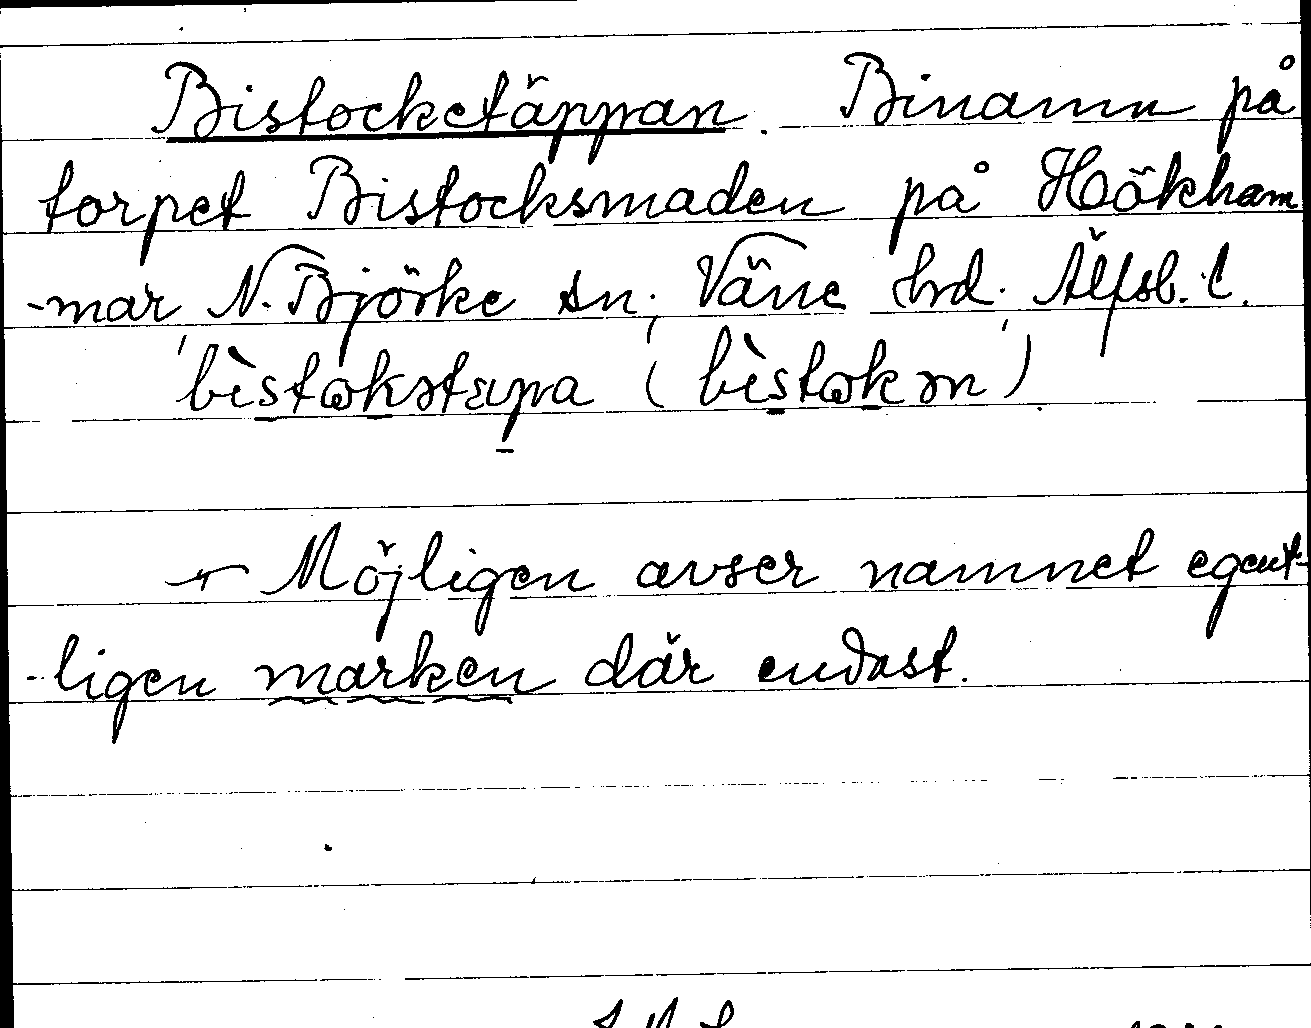 Bistocketäppan. Binamn på
torpet Bistocksmaden på Hökham
-mar, N. Björke sn, Väne hrd, Älfsb. l.
bìstɷkstɛpa (bìstɷkən)
Möjligen avser namnet egent-
-ligen marken där endast.